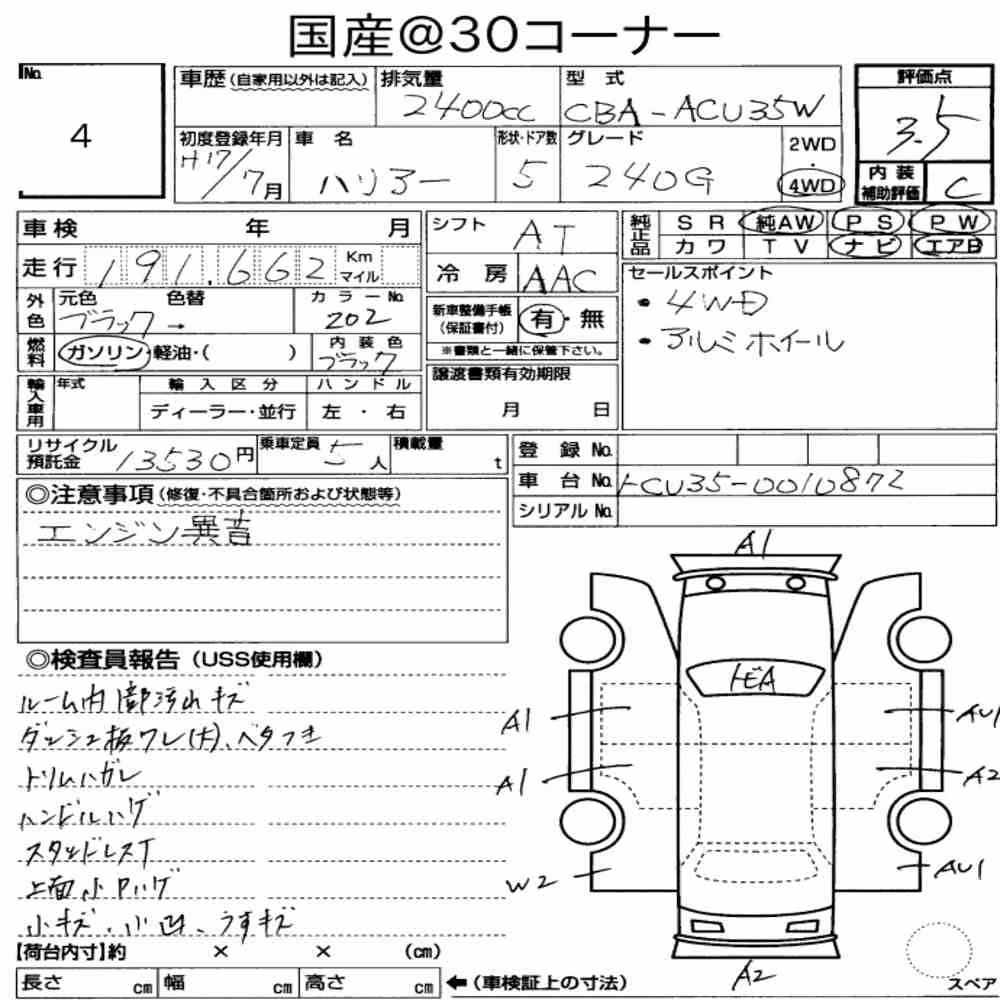 国産@30コーナー
No. 4
車歴 (自家用以外は記入) 排気量 2400cc 型式 CBA-ACU35W 評価点 3.5
初度登録年月 H17/7月 車名 ハリアー 形状・ドア数 5 グレード 240G 2WD・4WD 内装補助評価 C
車検 年 月 シフト AT 純正品 SR 純AW PS PW
カワ TV ナビ エアB
走行 191,662 Km マイル 冷房 AAC セールスポイント
・4WD
・アルミホイール
外色 元色 ブラック → 色替 カラーNo. 202 新車整備手帳 (保証書付) 有・無
※書類と一緒に保管下さい。
燃料 ガソリン・軽油・( ) 内装色 ブラック
譲渡書類有効期限 月 日
輸入車用 年式 輸入区分 ハンドル
ディーラー・並行 左・右
リサイクル預託金 13530円 乗車定員 5人 積載量 t
登録No.
車台No. ACU35-0010872
シリアルNo.
◎注意事項 (修復・不具合箇所および状態等)
エンジン異音
◎検査員報告 (USS使用欄)
ルーム内張汚れキズ
ダッシュ板ワレ(大)、ベタつき
トリムハガレ
ハンドルハゲ
スタッドレスT
上面小Pハゲ
小キズ、小凹、うすキズ
A1
トビA
A1
AU1
A1
A2
W2
AU1
A2
スペア
【荷台内寸】約 × × (cm)
長さ cm 幅 cm 高さ cm ←(車検証上の寸法)